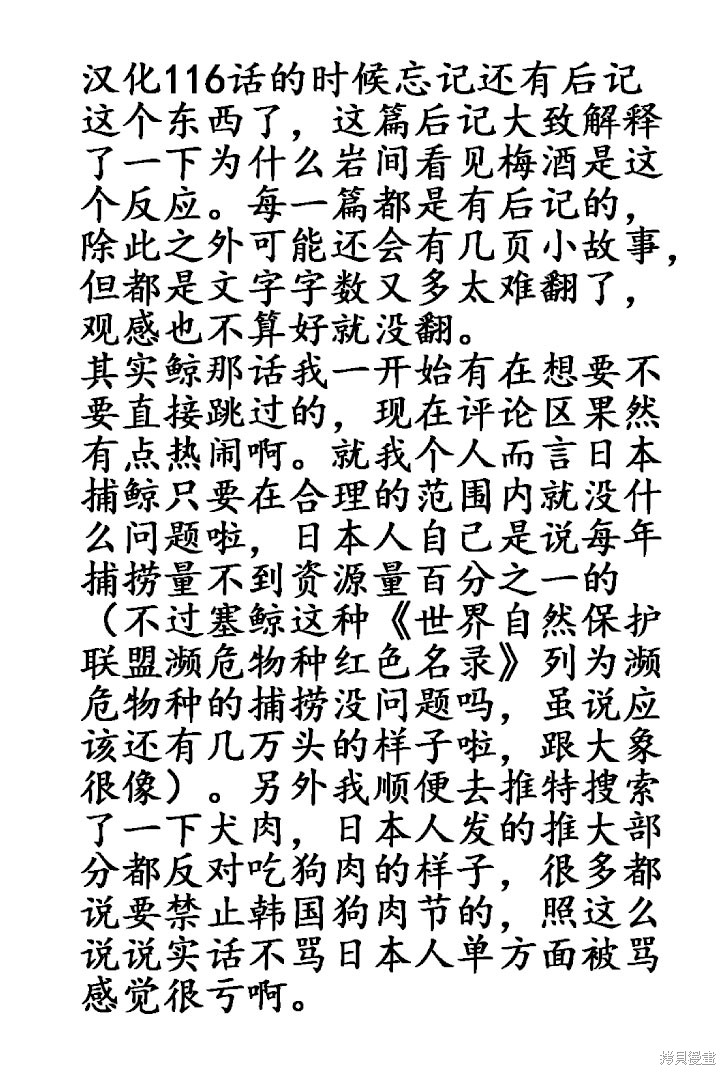 汉化116话的时候忘记还有后记
这个东西了，这篇后记大致解释
了一下为什么岩间看见梅酒是这
个反应。每一篇都是有后记的，
除此之外可能还会有几页小故事，
但都是文字字数又多太难翻了，
观感也不算好就没翻。
其实鲸那话我一开始有在想要不
要直接跳过的，现在评论区果然
有点热闹啊。就我个人而言日本
捕鲸只要在合理的范围内就没什
么问题啦，日本人自己是说每年
捕捞量不到资源量百分之一的
（不过塞鲸这种《世界自然保护
联盟濒危物种红色名录》列为濒
危物种的捕捞没问题吗，虽说应
该还有几万头的样子啦，跟大象
很像）。另外我顺便去推特搜索
了一下犬肉，日本人发的推大部
分都反对吃狗肉的样子，很多都
说要禁止韩国狗肉节的，照这么
说说实话不骂日本人单方面被骂
感觉很亏啊。
拷貝漫畫